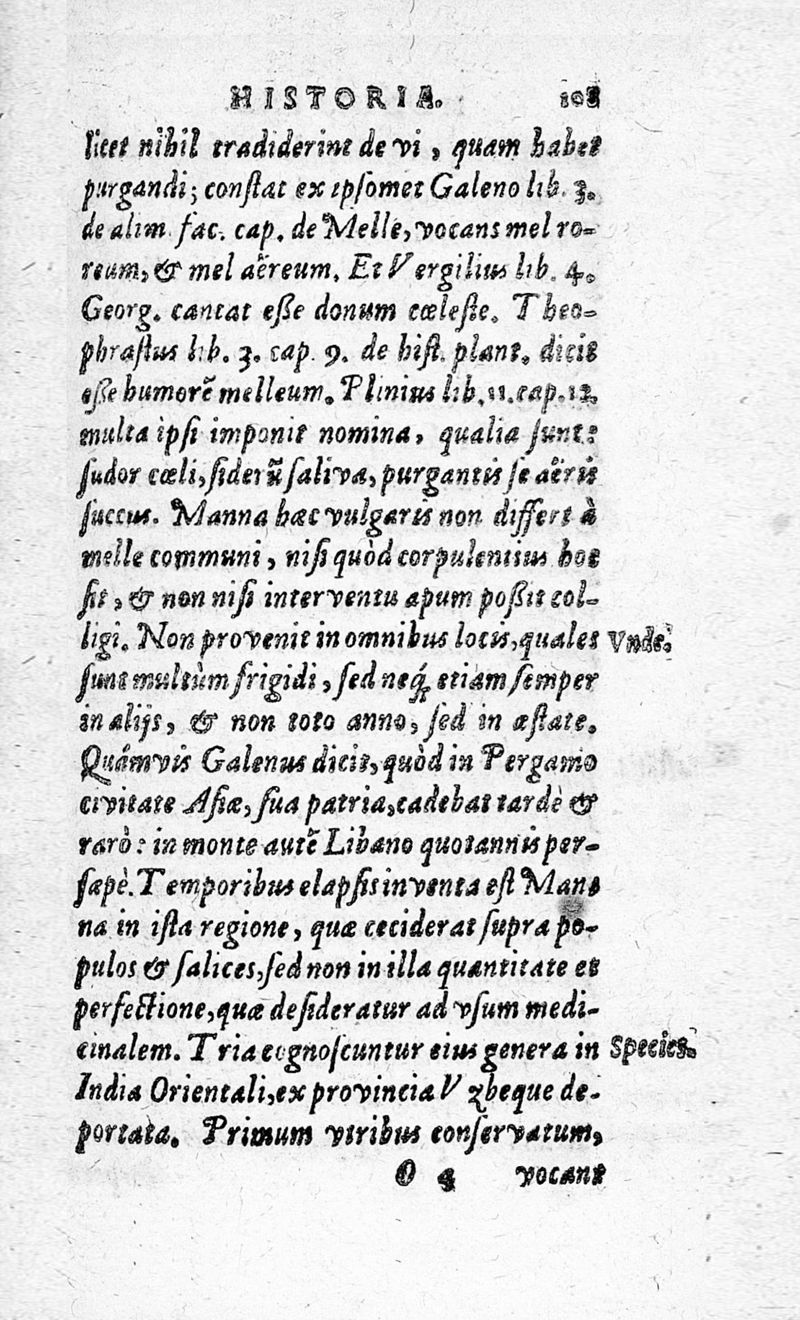 HISTORIA. 108
licet nihil tradiderint de vi, quam habet
purgandi; conſtat ex ipſomet Galeno lib. 3.
de alim. fac. cap. de Melle, vocans mel ro-
reum, & mel aëreum. Et Vergilius lib. 4.
Georg. cantat eſſe donum cœleſte. Theo-
phraſtus lib. 3. cap. 9. de hiſt. plant. dicit
eſſe humorẽ melleum. Plinius lib. 11. cap. 12.
multa ipſi imponit nomina, qualia ſunt:
ſudor cœli, ſiderũ ſaliva, purgantis ſe aëris
ſuccus. Manna hæc vulgaris non differt à
melle communi, niſi quòd corpulentius hoc
ſit, & non niſi interventu apum poſſit col-
ligi. Non provenit in omnibus locis, quales
Vnde.
ſunt multùm frigidi, ſed neq́ etiam ſemper
in alijs, & non toto anno, ſed in æſtate.
Quámvis Galenus dicit, quòd in Pergamo
civitate Aſiæ, ſua patria, cadebat tardè &
rarò: in monte autẽ Libano quotannis per-
ſæpè. Temporibus elapſis inventa eſt Man-
na in iſta regione, quæ ceciderat ſupra po-
pulos & ſalices, ſed non in illa quantitate et
perfectione, quæ deſideratur ad vſum medi-
cinalem. Tria cognoſcuntur eius genera in
Species.
India Orientali, ex provincia Vzbeque de-
portata. Primum vtribus conſervatum,
O 4 vocant